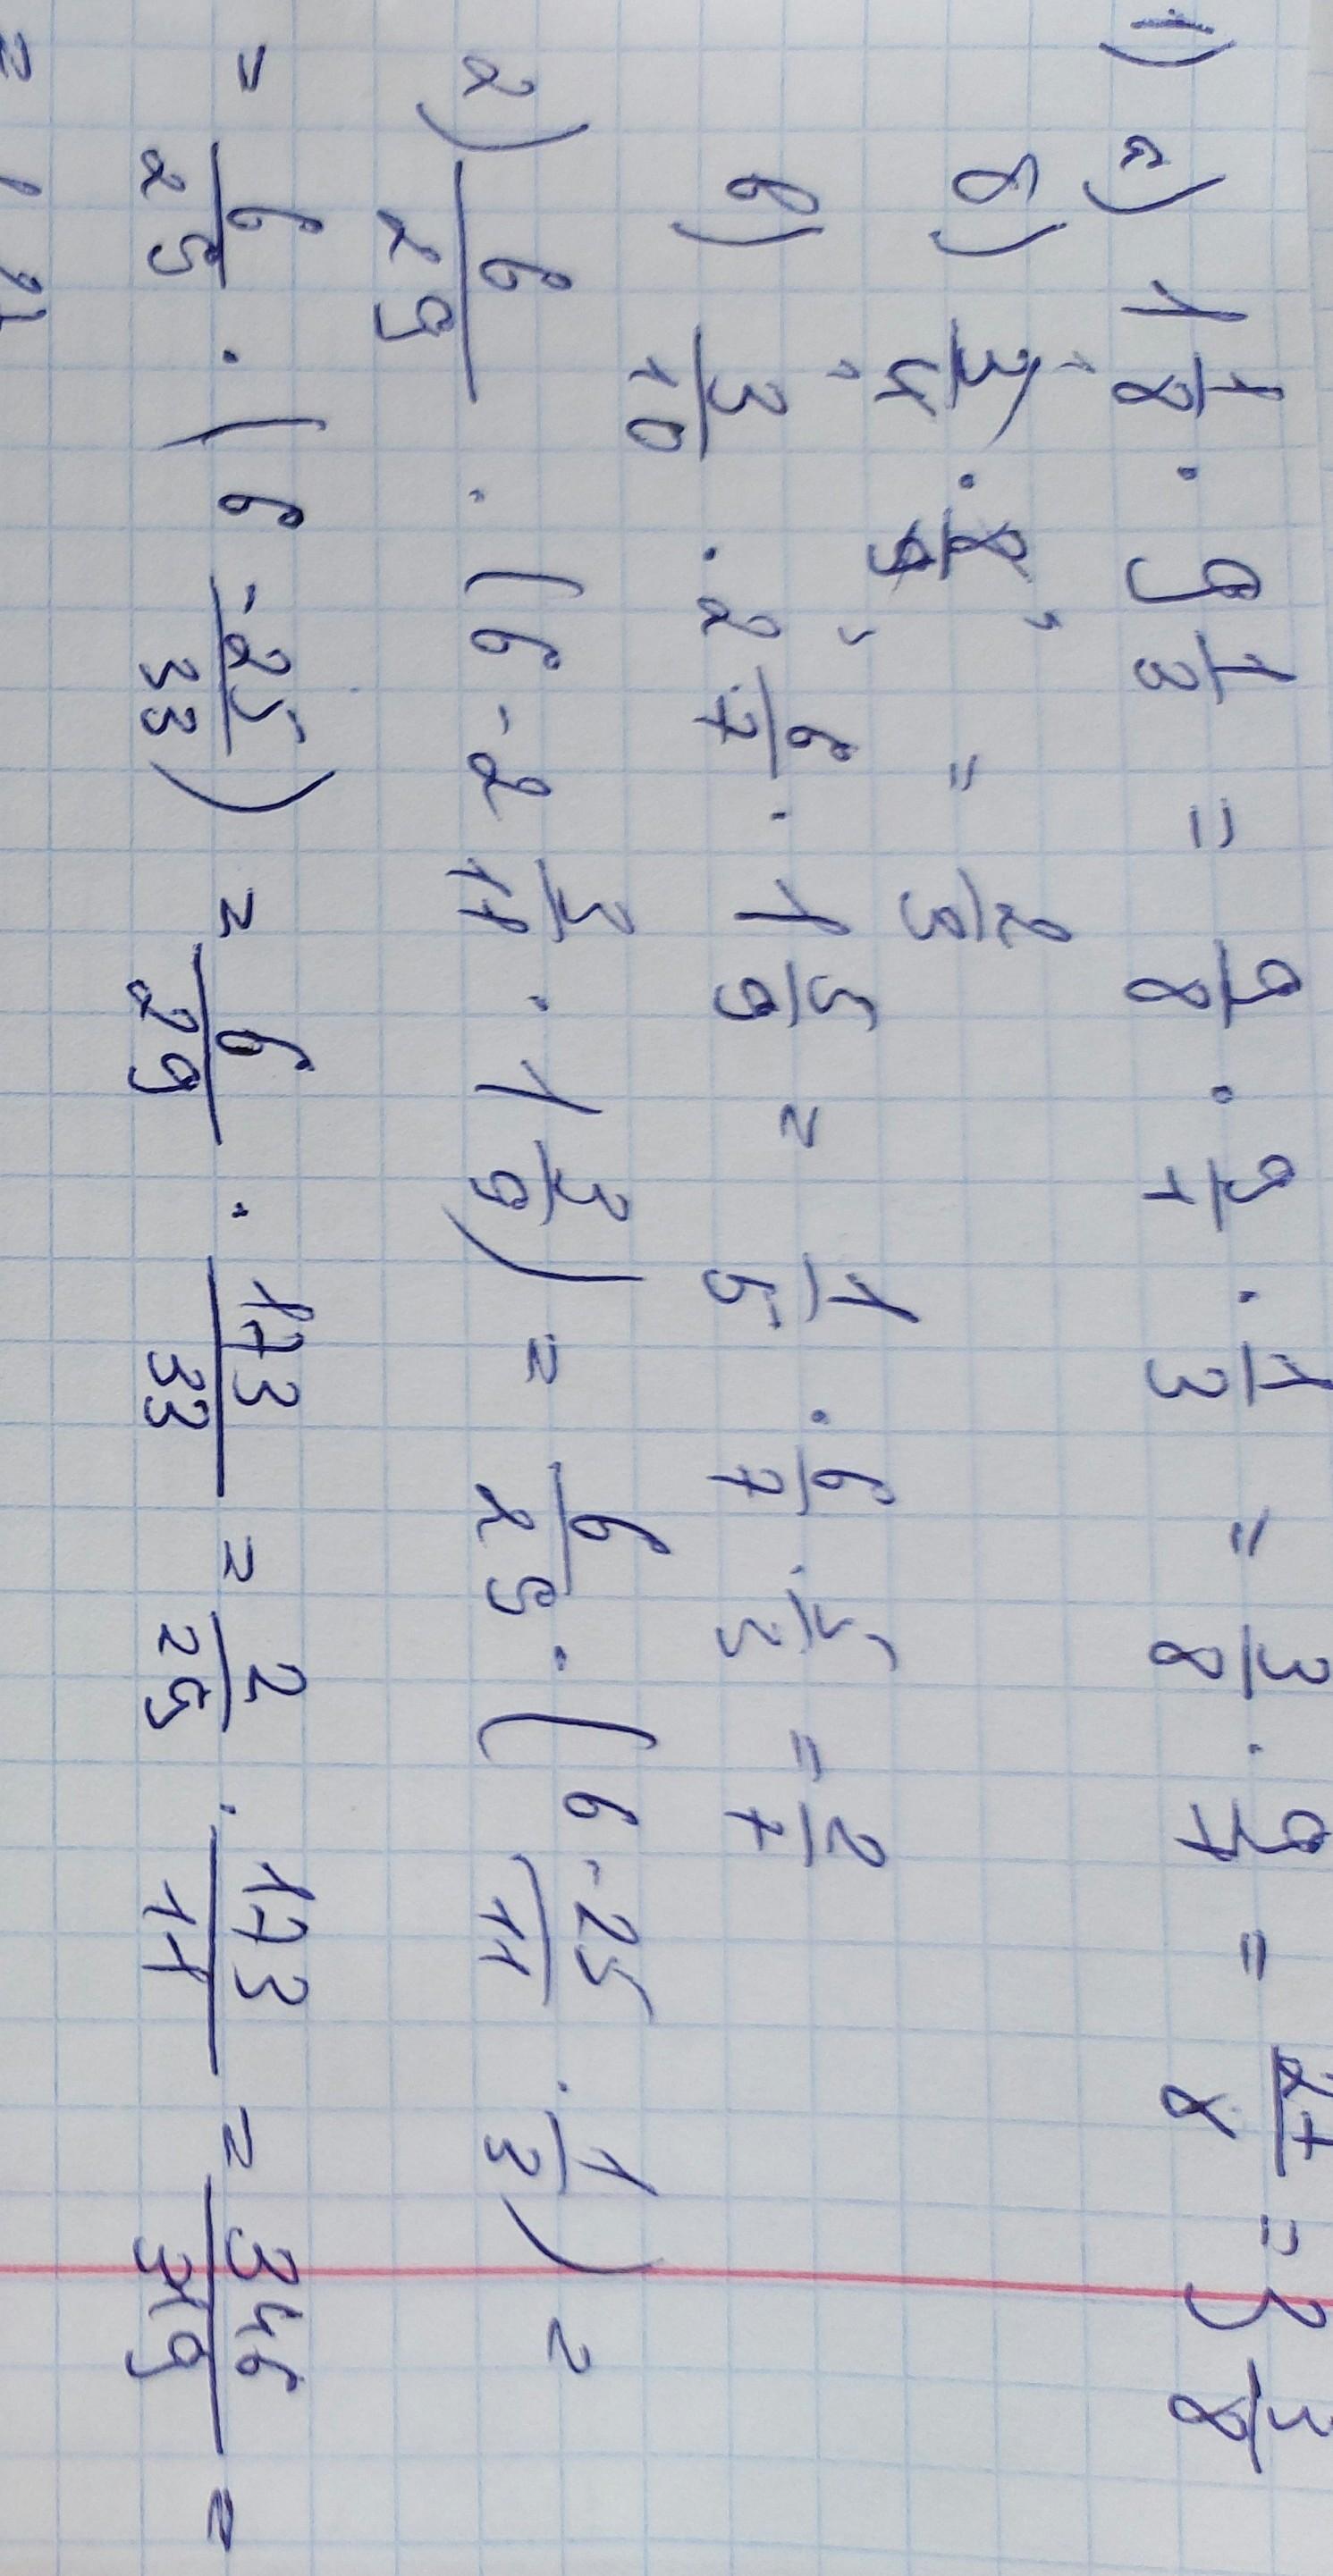 1) а) 1 1/8 · 9 1/3 = 9/8 · 9/1 · 1/3 = 3/8 · 9/1 = 27/8 = 3 3/8
б) 3/4 · 8/9 = 2/3
в) 3/10 · 2 6/7 · 1 5/9 = 1/5 · 6/7 · 5/3 = 2/7
2) 6/29 · (6 - 2 3/11 · 1 3/9) = 6/29 · (6 - 25/11 · 1/3) =
= 6/29 · (6 - 25/33) = 6/29 · 173/33 = 2/29 · 173/11 = 346/319 =
=